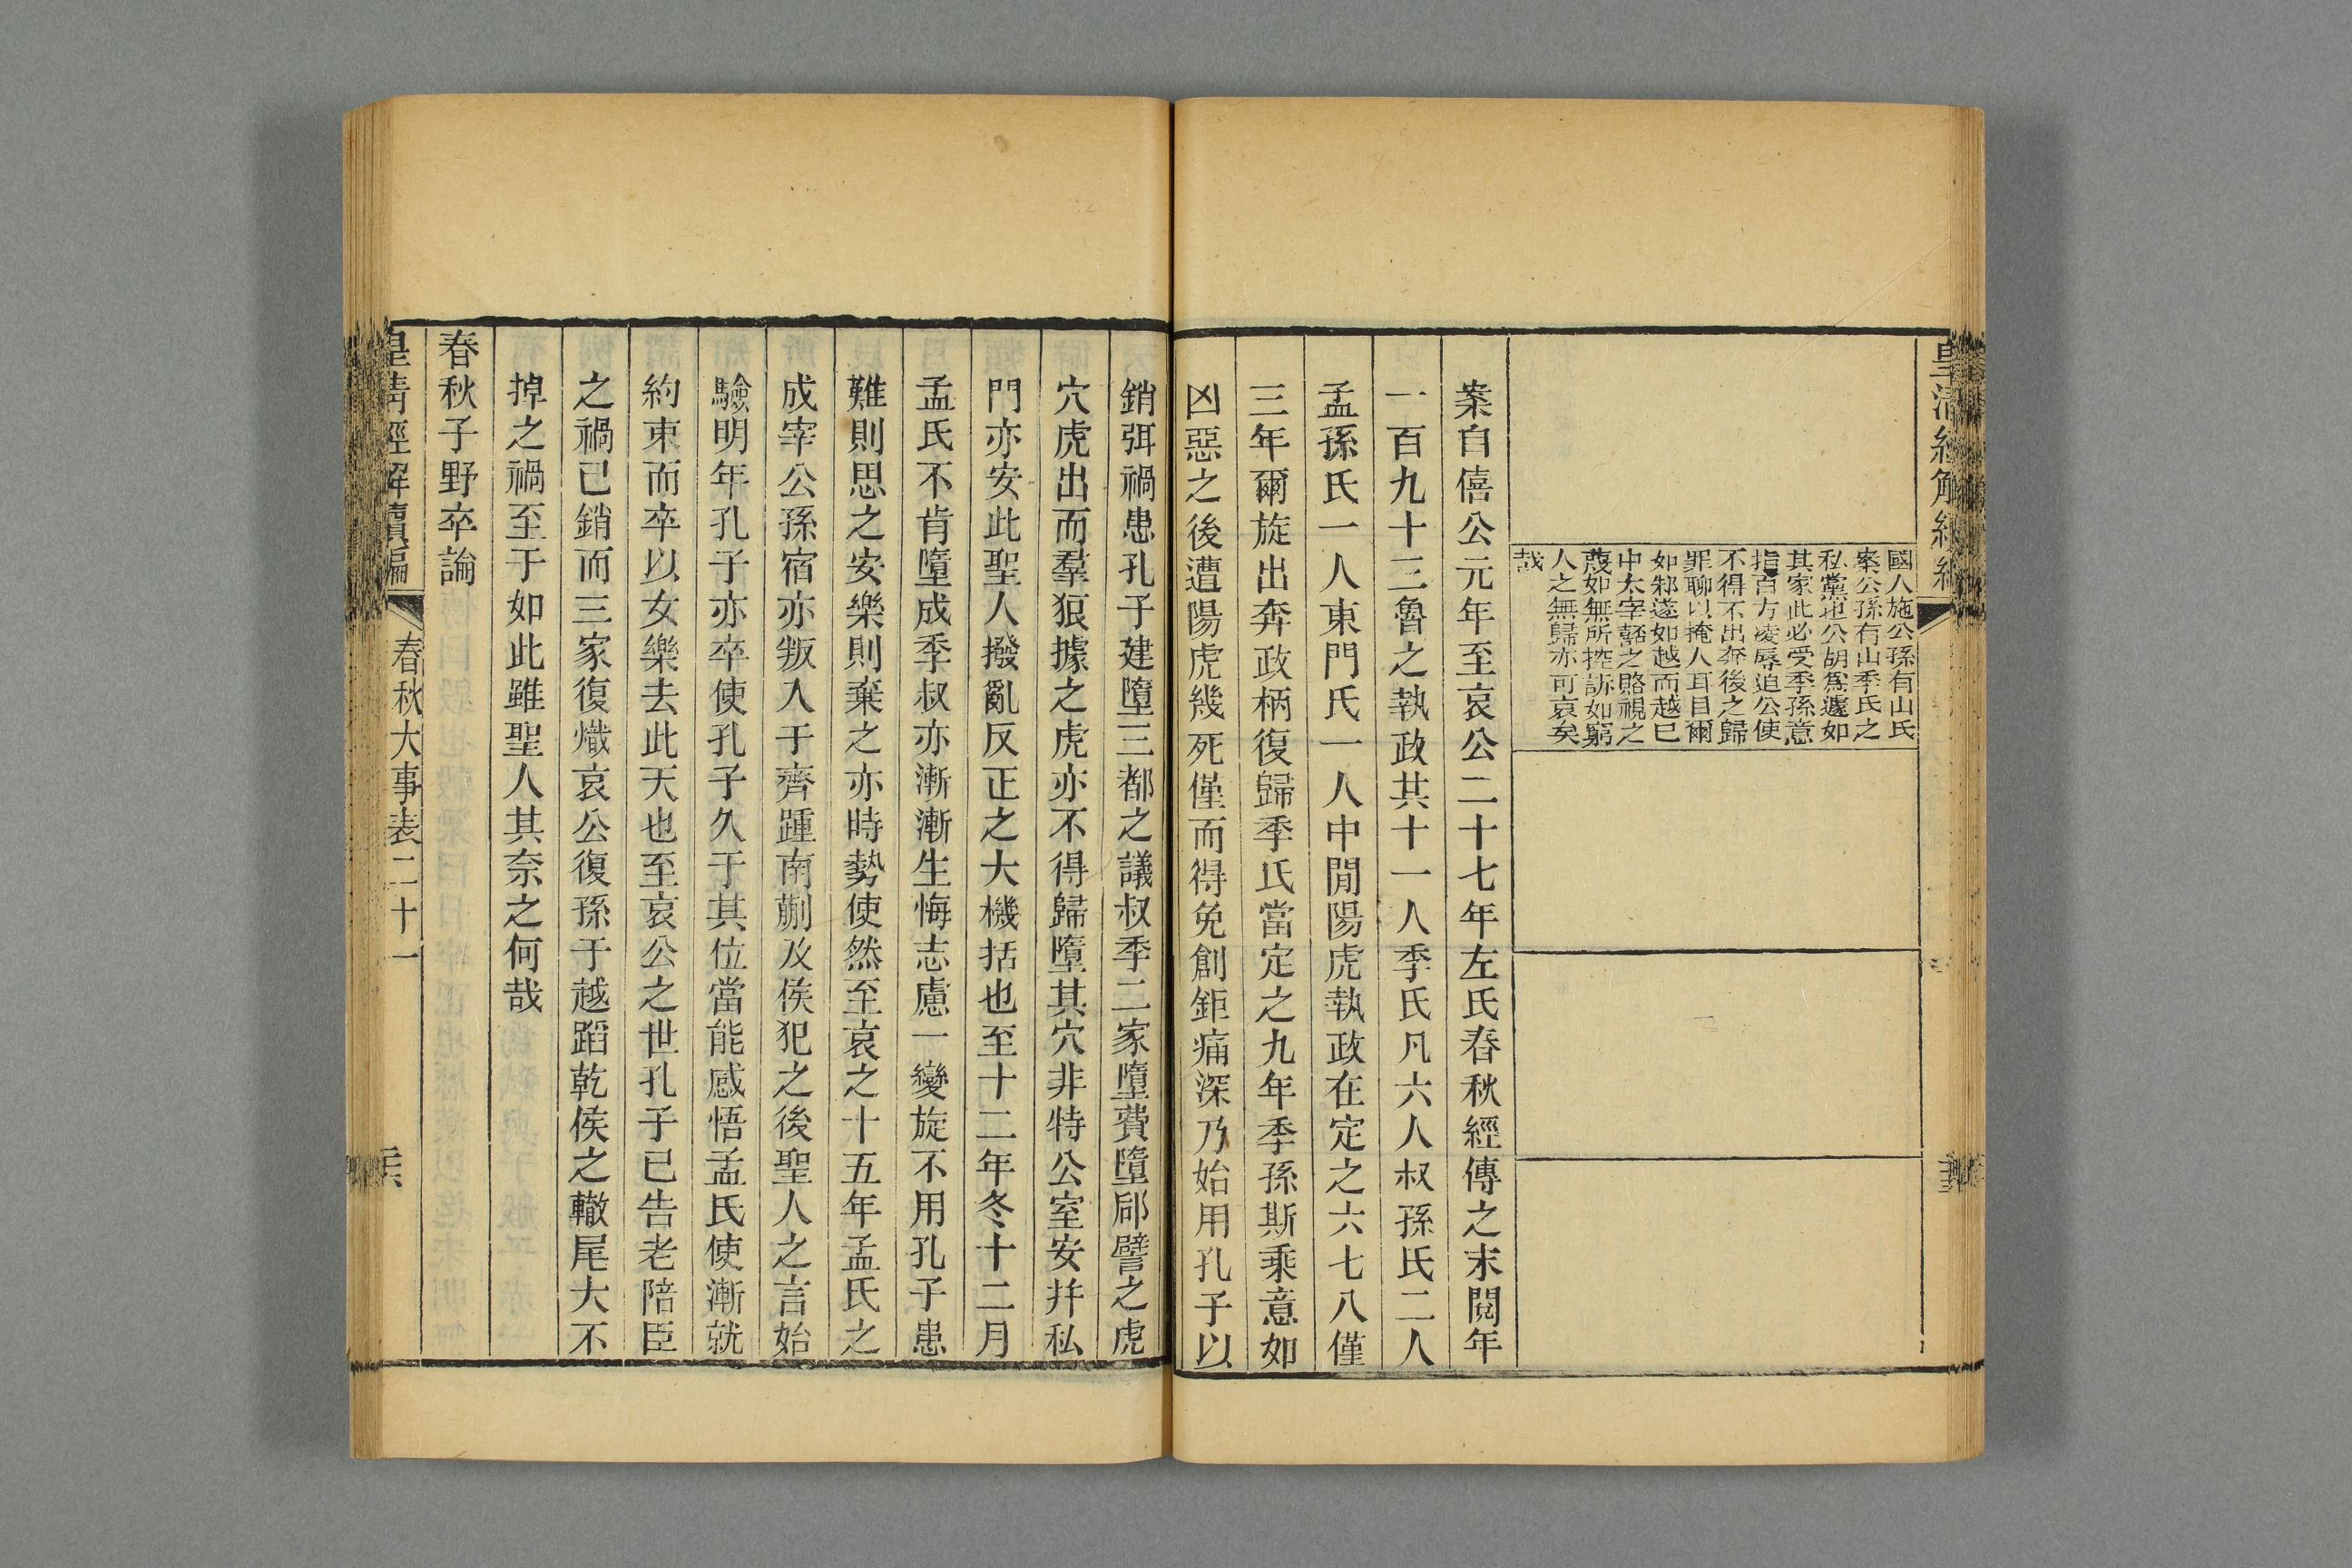 國人施公孫有山氏
案公孫有山季氏之
私黨也公胡爲遽如
其家此必受季孫意
指百方凌辱迫公使
不得不出奔後之歸
罪聊以掩人耳目爾
如邾遂如越而越已
中太宰嚭之賂視之
蔑如無所控訴如窮
人之無歸亦可哀矣
哉
案自僖公元年至哀公二十七年左氏春秋經傳之末閱年
一百九十三魯之執政其十一人季氏凡六人叔孫氏二人
孟孫氏一人東門氏一人中閒陽虎執政在定之六七八僅
三年爾旋出奔政柄復歸季氏當定之九年季孫斯乘意如
凶惡之後遭陽虎幾死僅而得免創鉅痛深乃始用孔子以
銷弭禍患孔子建墮三都之議叔季二家墮費墮郈譬之虎
穴虎出而羣狼據之虎亦不得歸墮其穴非特公室安幷私
門亦安此聖人撥亂反正之大機括也至十二年冬十二月
孟氏不肯墮成季叔亦漸漸生悔志慮一變旋不用孔子患
難則思之安樂則棄之亦時勢使然至哀之十五年孟氏之
成宰公孫宿亦叛入于齊踵南蒯及侯犯之後聖人之言始
驗明年孔子亦卒使孔子久于其位當能感悟孟氏使漸就
約束而卒以女樂去此天也至哀公之世孔子已告老陪臣
之禍已銷而三家復熾哀公復孫于越蹈乾侯之轍尾大不
掉之禍至于如此雖聖人其奈之何哉
春秋子野卒論
皇淸經解續編
春秋大事表二十一